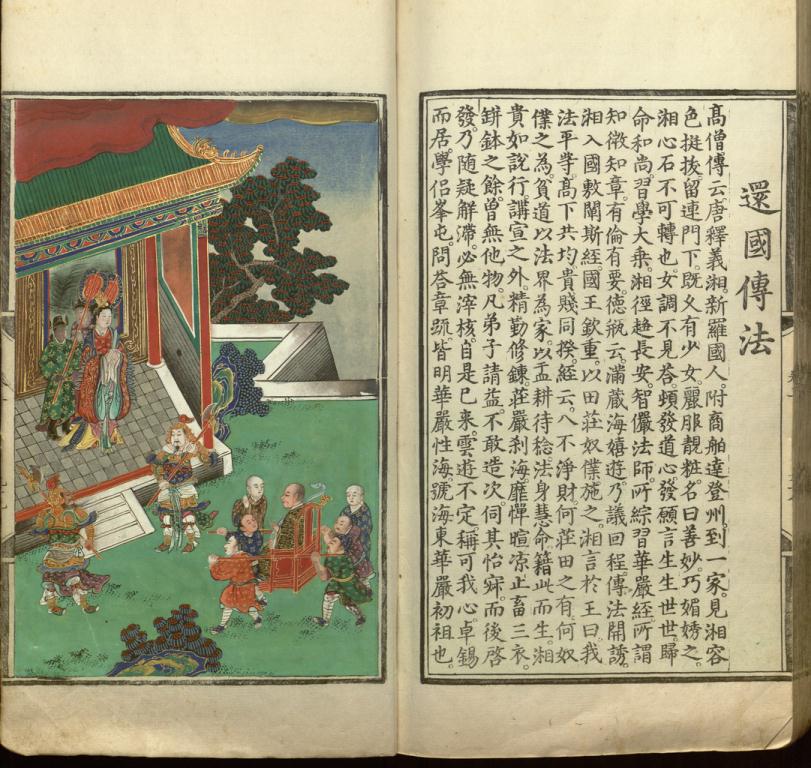 還國傳法
高僧傳云唐釋義湘。新羅國人。附商舶達登州。到一家。見湘容
色挺拔。留連門下。既久有少女。麗服靚粧。名曰善妙。巧媚誘之。
湘心石不可轉也。女調不見荅。頓發道心。發願言生生世世歸
命和尚。習學大乘。湘徑趨長安。智儼法師所綜習華嚴經。所謂
知微知章。有倫有要。德瓶云滿。藏海嬉遊。乃議回程。傳法開誘。
湘入國敷闡斯經。國王欽重。以田莊奴僕施之。湘言於王曰。我
法平等。高下共均。貴賤同揆。經云。八不淨財。何莊田之有。何奴
僕之為。貧道以法界為家。以盂耕待稔。法身慧命。籍此而生。湘
貴如說行。講宣之外。精勤修鍊。莊嚴剎海。靡憚暄凉。止畜三衣。
缾鉢之餘。曾無他物。凡弟子請益。不敢造次。伺其怡寂。而後啓
發。乃隨疑解滯。必無滓核。自是已來。雲遊不定。稱可我心。卓錫
而居。學侶峯屯。問荅章䟽。皆明華嚴性海。號海東華嚴初祖也。